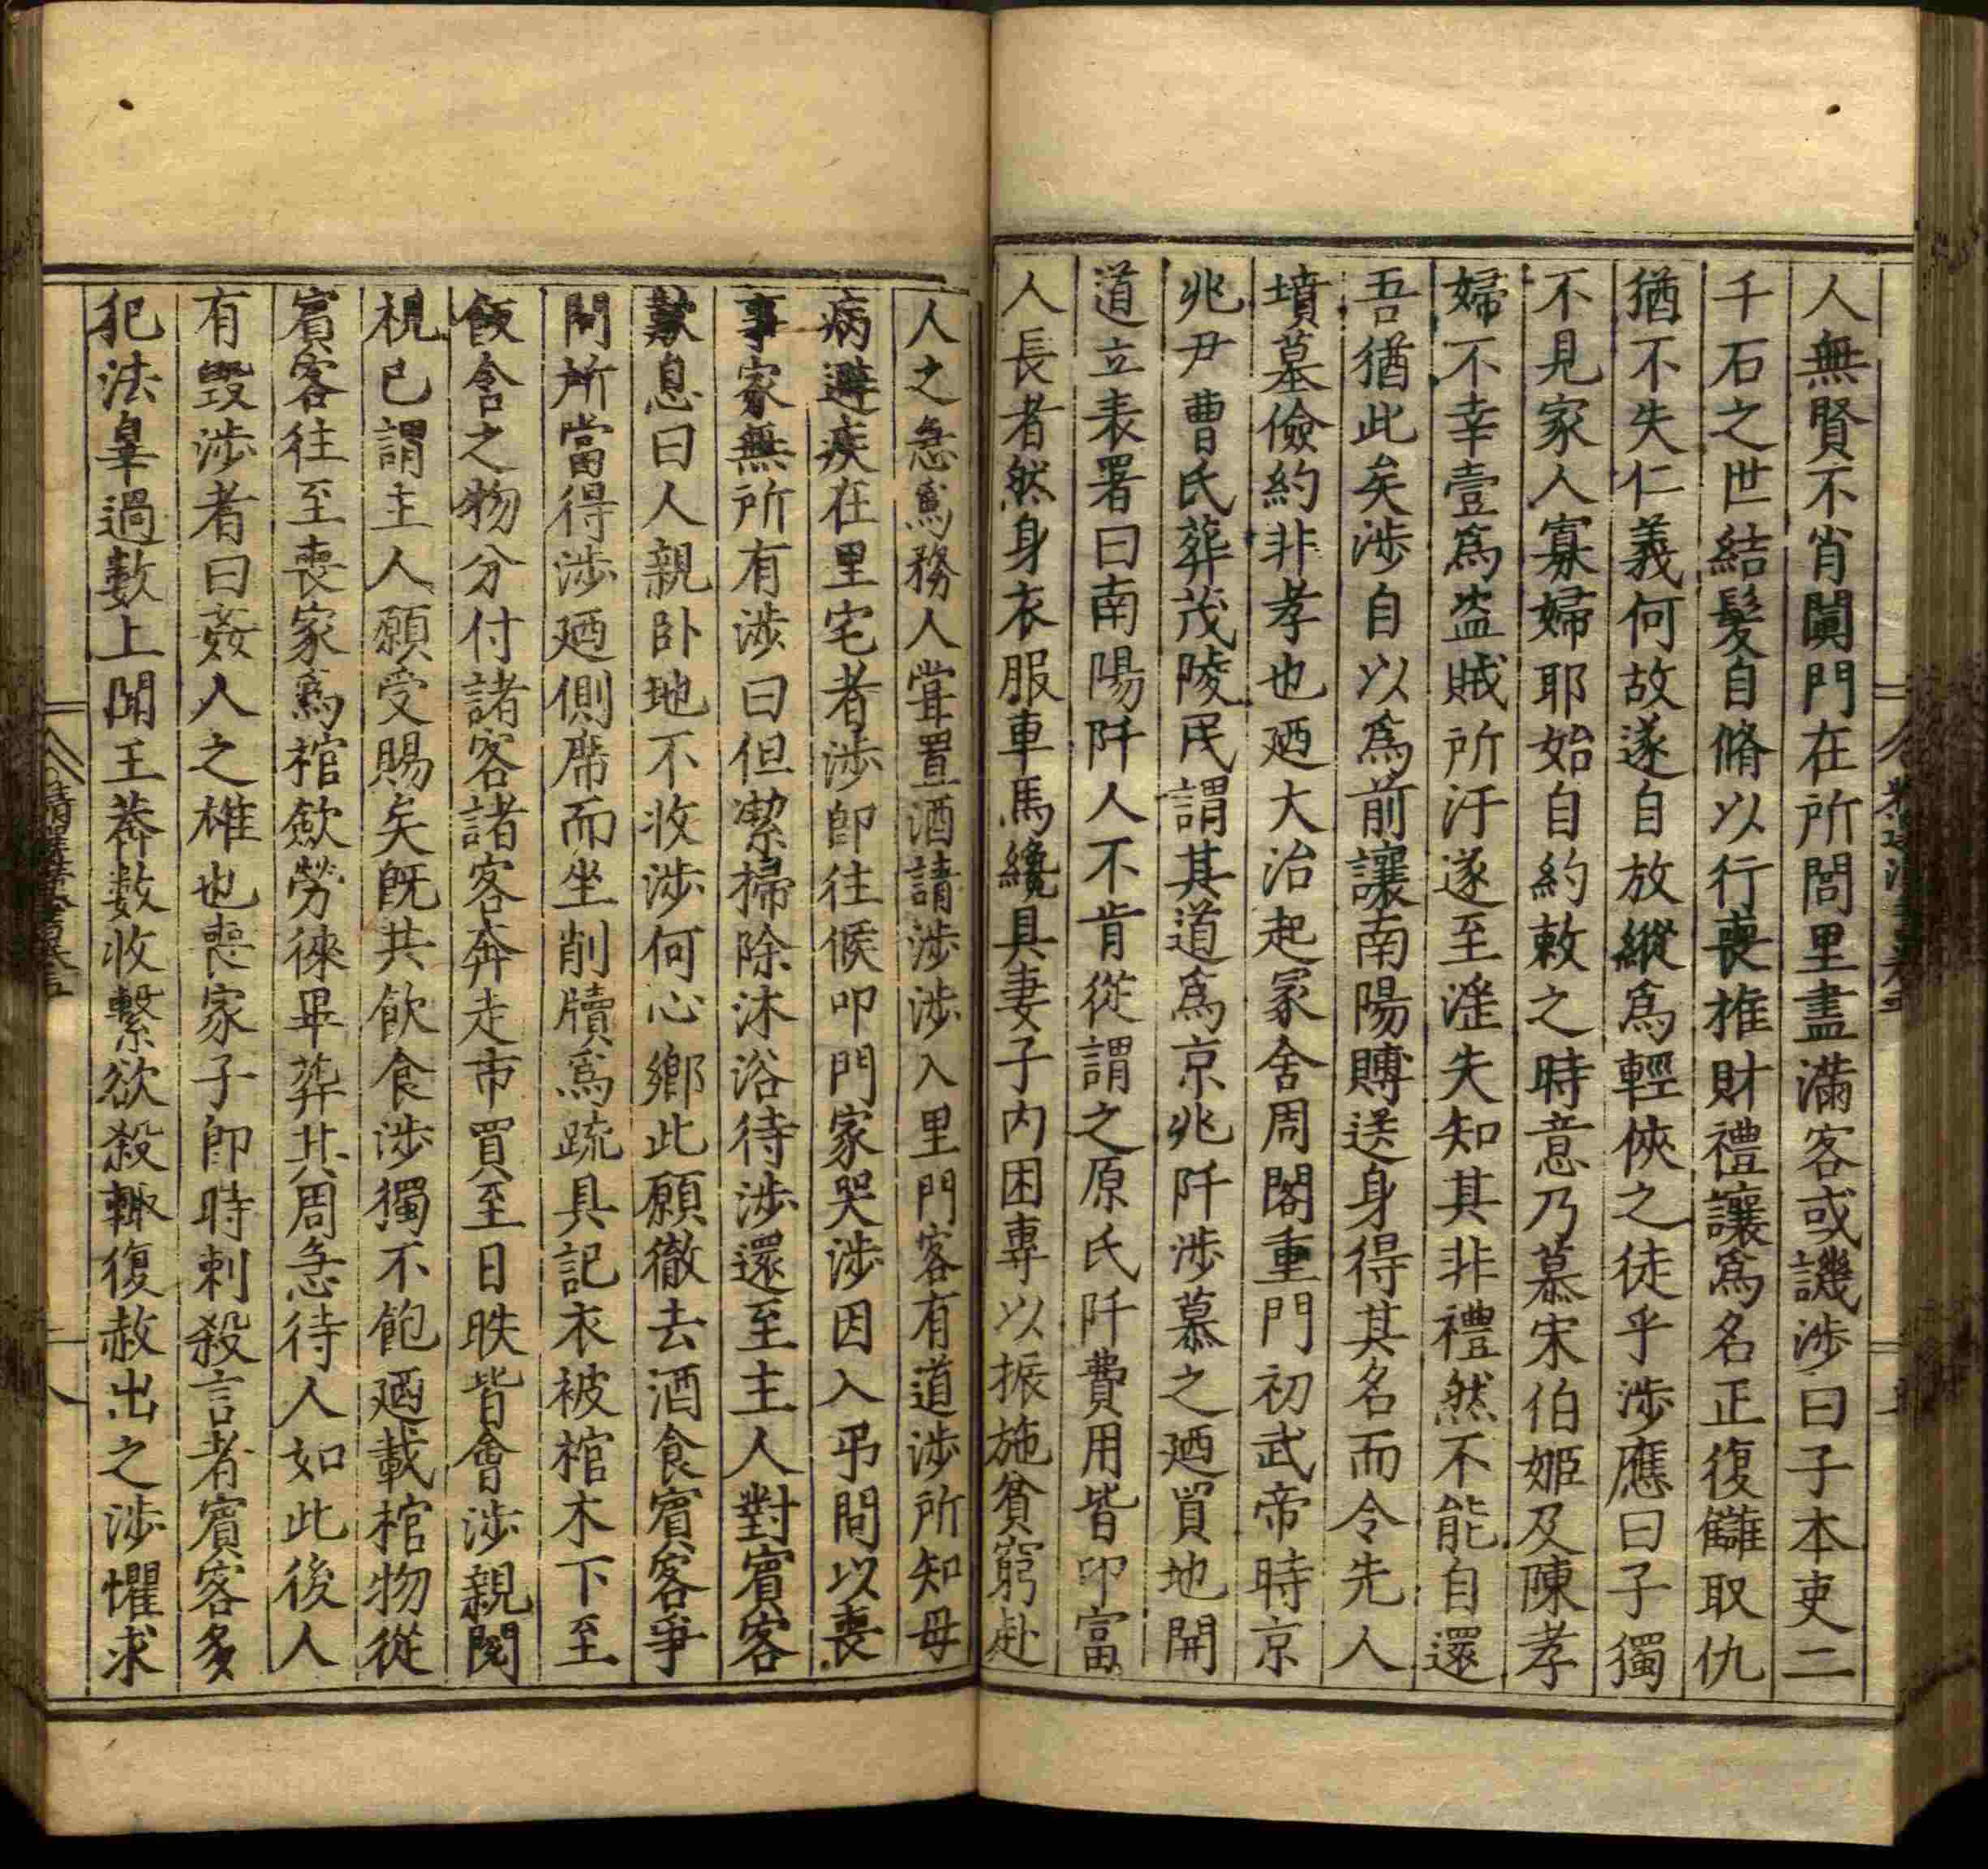 人無賢不肖闐門在所閭里盡滿客或譏涉曰子本吏二
千石之世結髮自脩以行喪推財禮讓爲名正復讎取仇
猶不失仁義何故遂自放縱爲輕俠之徒乎涉應曰子獨
不見家人寡婦耶始自約敕之時意乃慕宋伯姬及陳孝
婦不幸壹爲盜賊所汙遂至淫失知其非禮然不能自還
吾猶此矣涉自以爲前讓南陽賻送身得其名而令先人
墳墓儉約非孝也廼大治起冢舍周閣重門初武帝時京
兆尹曹氏葬茂陵民謂其道爲京兆阡涉慕之廼買地開
道立表署曰南陽阡人不肯從謂之原氏阡費用皆卬富
人長者然身衣服車馬纔具妻子内困專以振施貧窮赴
人之急爲務人嘗置酒請涉涉入里門客有道涉所知母
病避疾在里宅者涉卽往候叩門家哭涉因入弔問以喪
事家無所有涉曰但潔掃除沐浴待涉還至主人對賓客
歎息曰人親臥地不收涉何心鄉此願徹去酒食賓客爭
問所當得涉廼側席而坐削牘爲疏具記衣被棺木下至
飯含之物分付諸客諸客奔走市買至日昳皆會涉親閱
視已謂主人願受賜矣旣共飮食涉獨不飽廼載棺物從
賓客往至喪家爲棺歛勞倈畢葬其周急待人如此後人
有毁涉者曰姦人之雄也喪家子卽時刺殺言者賓客多
犯法辠過數上聞王莽數收繫欲殺輒復赦出之涉懼求